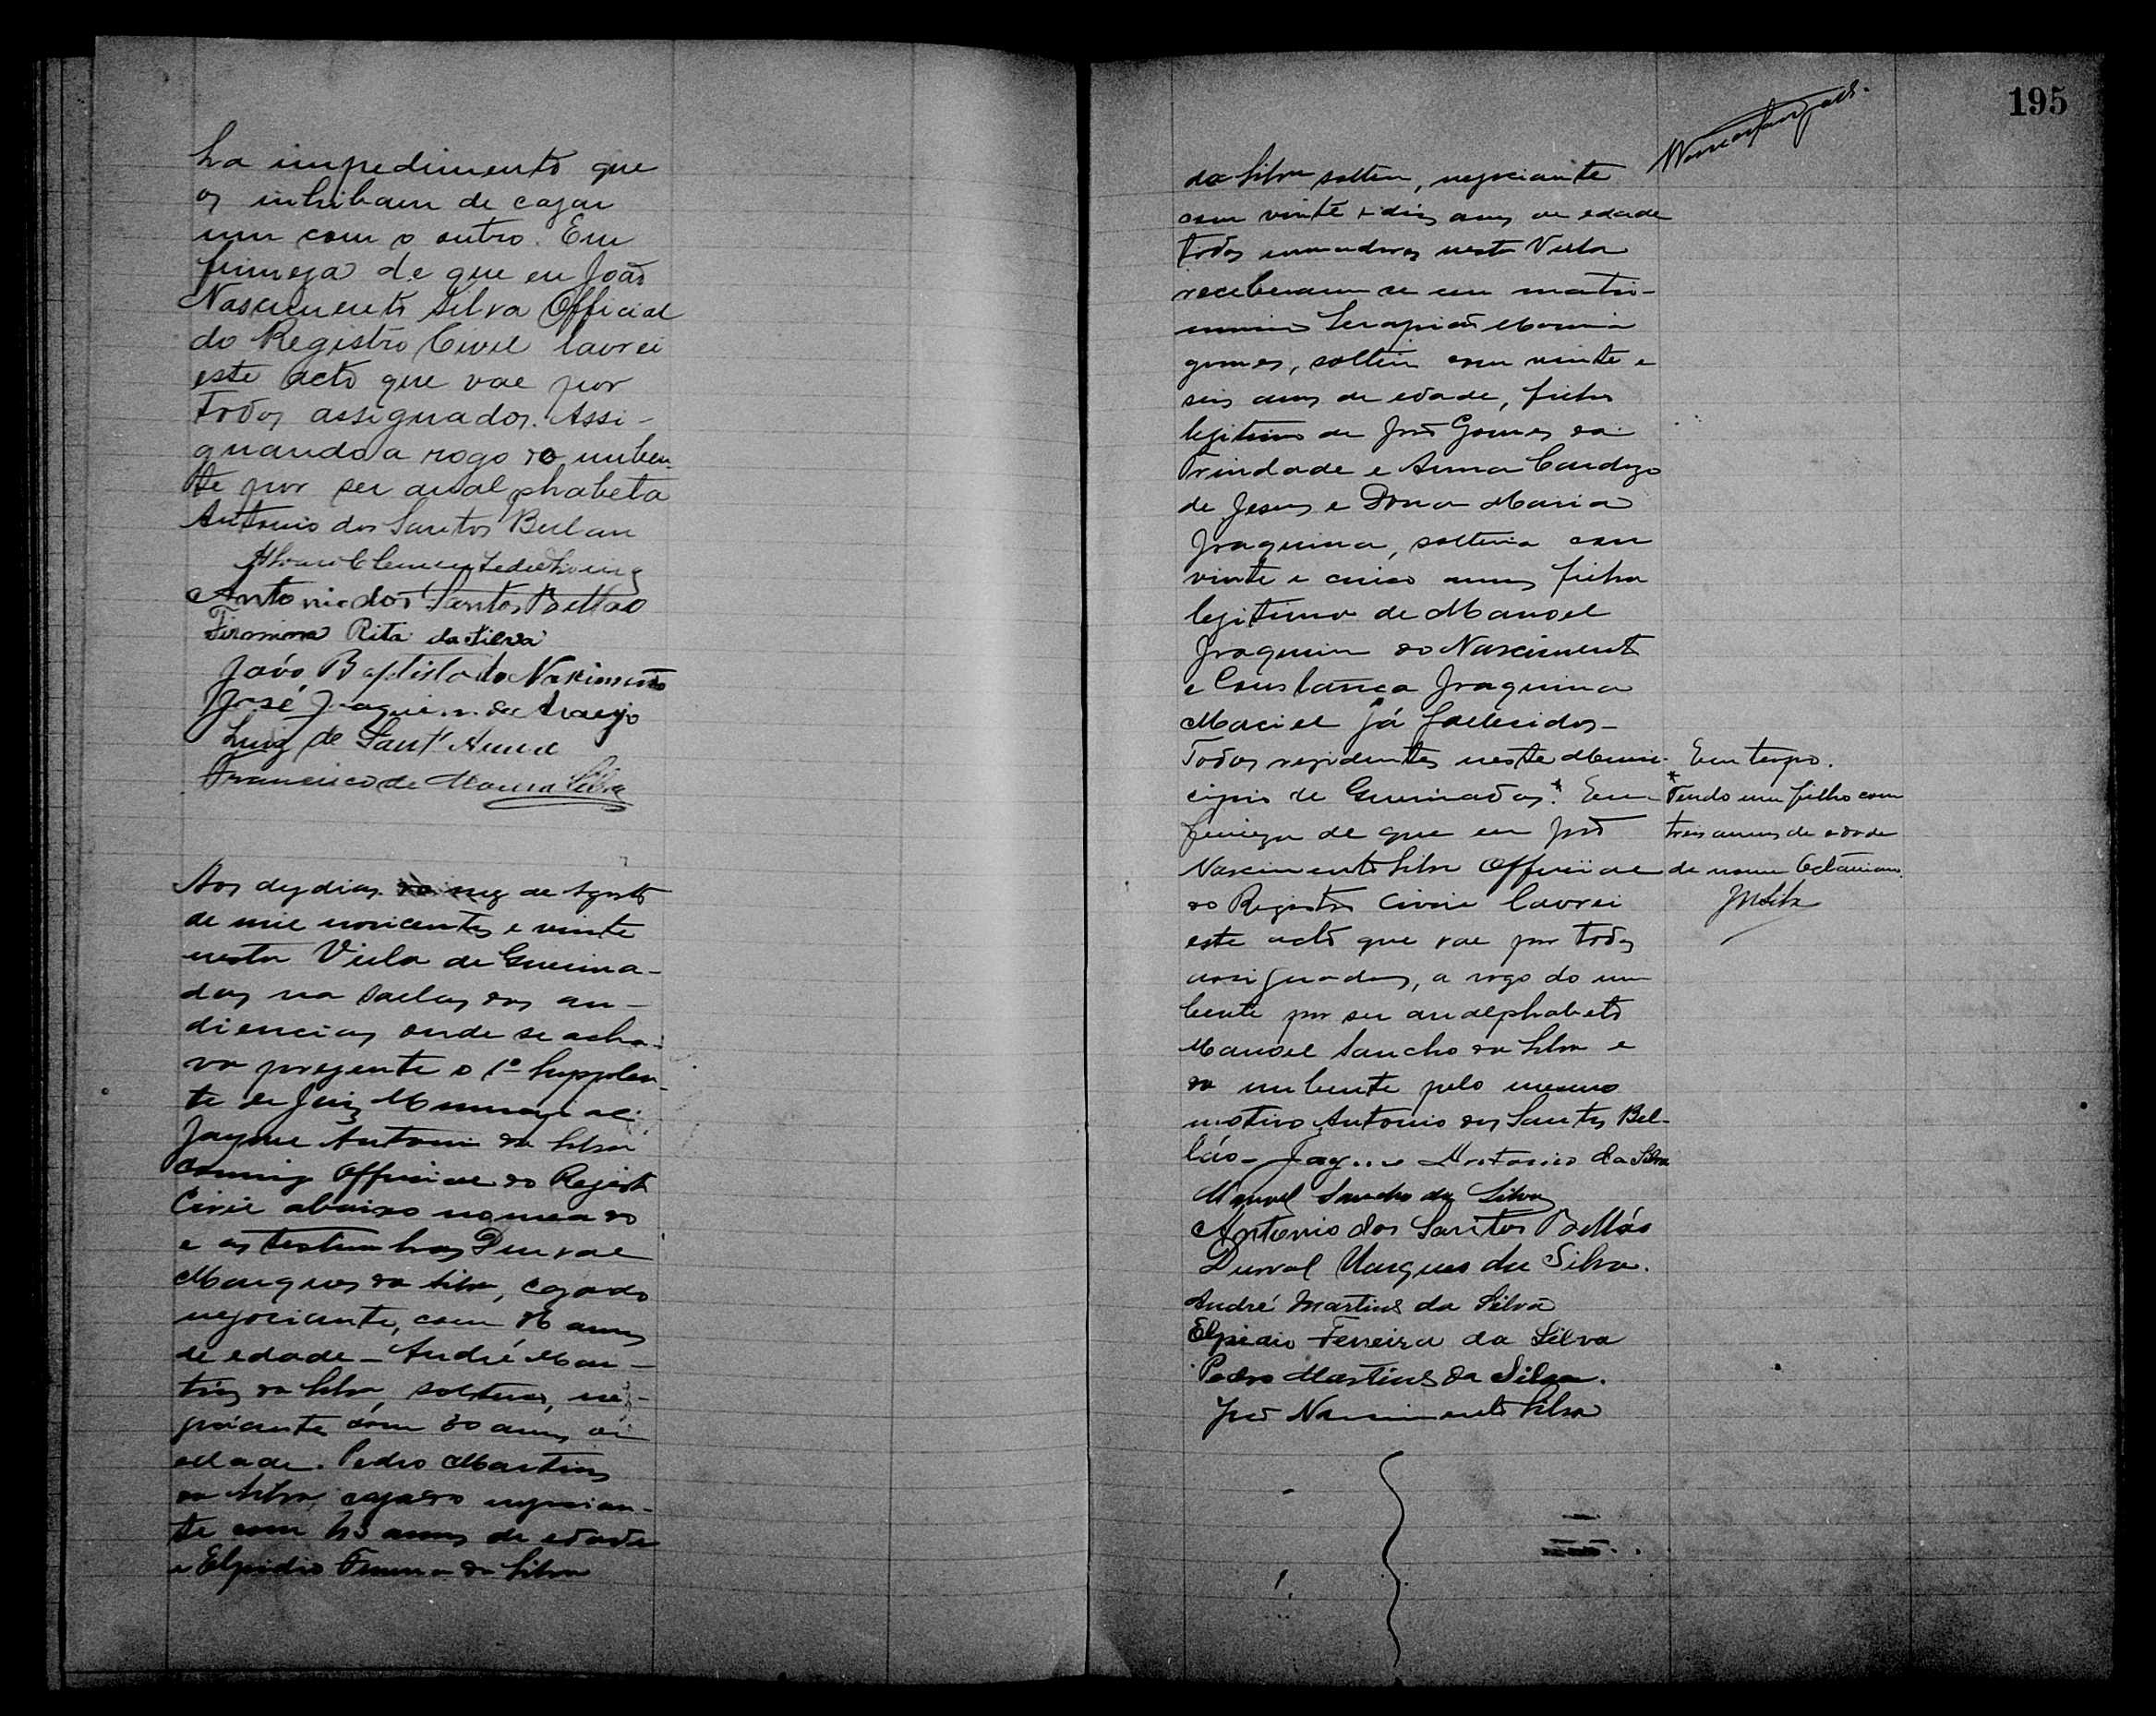 ha impedimento que
os inhibam de cazar
um com o outro. Em
firmeza de que eu João
Nascimento Silva Official
do Registro Civil lavrei
este acto que vae por
todos assignados. Assi-
gnando a rogo do nuben-
te por ser analphabeta
Antonio dos Santos Bellau
Antonio dos Santos Bellao
Firmina Rita da Silva
João Baptista do Nascimento
José Joaquim de Araujo
Luiz de Sant'Anna
Francisco de Moura Silva
Aos dez dias do mez de Agosto
de mil novicentos e vinte
nesta Villa de Queima-
das na salas das au-
diencias onde se acha-
va prezente o 1º Supplen-
te de Juiz Municipal
Jayme Antonio da Silva
comigo Official do Registro
Civil abaixo nomeado
e as testemunhas Durval
Marques da Silva, cazado
negociante, com annos
de edade - André Mar-
tins da Silva, solteiro, ne-
gociante com 30 annos de
edade. Pedro Martins
da Silva, cazado negocian-
te com 43 annos de edade
e Elpidio Ferreira da Silva
195
da Silva solteiro, negociante
com vinte e dois annos de edade
todos moradores nesta Villa
receberam se em matri-
monio Serapião Maria
gomes, solteiro com vinte e
seis annos de edade, filho
legitimo de José Gomes da
Trindade e Anna Cardozo
de Jesus e Dona Maria
Joaquina, solteira com
vinte e cinco annos filha
legitima de Manoel
Joaquim do Nascimento
e Constança Joaquina
Maciel já fallecidos -
Todos rezidentes neste Muni-
cipio de Queimadas.* Em
firmeza de que eu João
Nascimento Silva Official
do Registro Civil lavrei
este acto que vae por todos
assignados, a rogo do nu-
bente por ser analphabeto
Manoel Sancho da Silva e
da nubente pelo mesmo
motivo Antonio dos Santos Bel-
lão - Jayme Antonio da Silva
Manoel Sancho da Silva
Antonio dos Santos Bellão
Durval Marques da Silva.
André Martins da Silva
Elpidio Ferreira da Silva
Pedro Martins da Silva.
João Nascimento Silva
Em tempo.
* Tendo um filho com
tres annos de edade
de nome Octaviano.
JNSilva